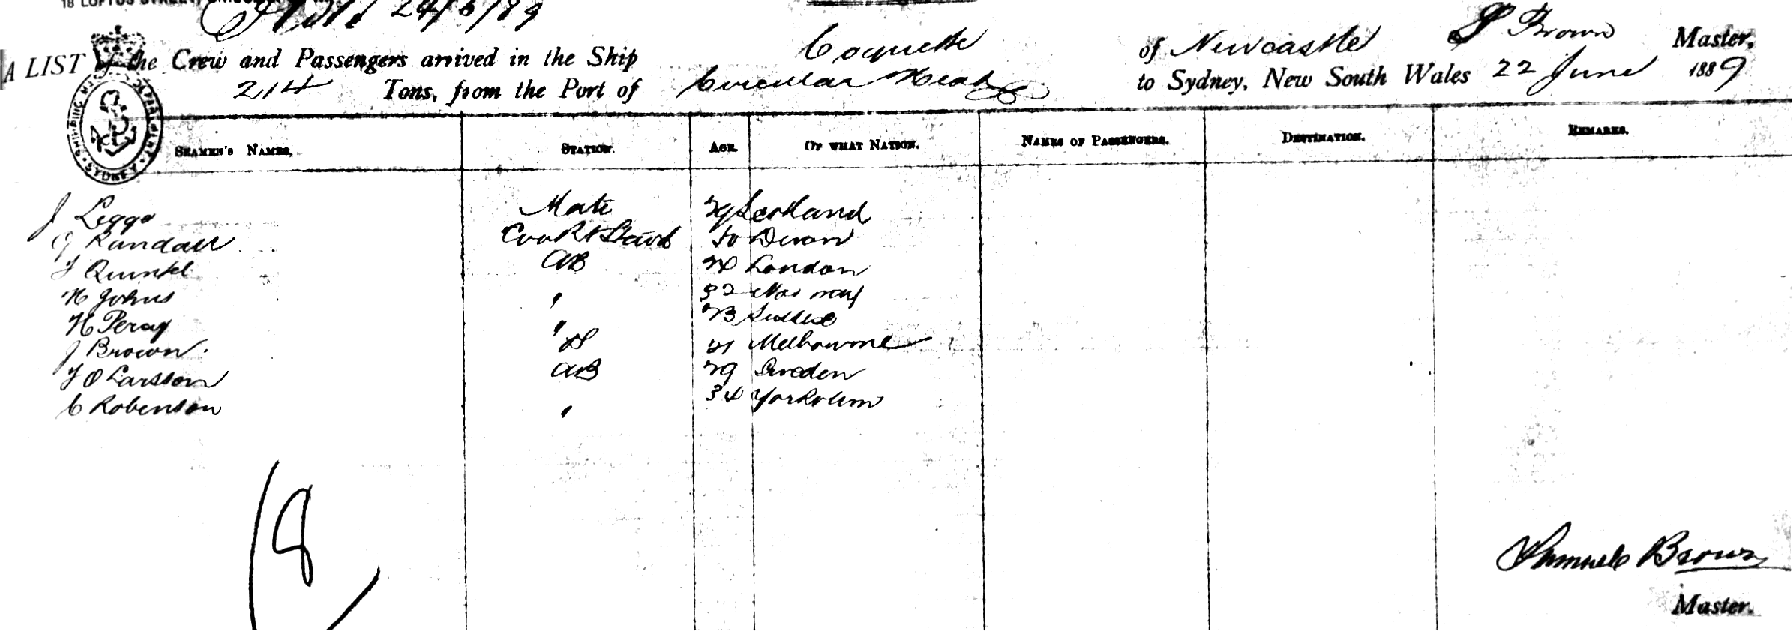 24/6/89
A LIST of the Crew and Passengers arrived in the Ship Coquette of Newcastle S Brown Master,
214 Tons, from the Port of Circular Head to Sydney, New South Wales 22 June 1889
SEAMEN'S NAMES. STATION. AGE. OF WHAT NATION. NAMES OF PASSENGERS. DESTINATION. REMARKS.
J Leggo Mate 29 Scotland
G Randall Cook & Stewd Devon
AB London
H Johns " 32 Norway
H Percy " 23 Sussex
J Brown 21 Melbourne
J O Larsson AB 29 Sweden
C Robenson " 34
8
Samuel Brown
Master.